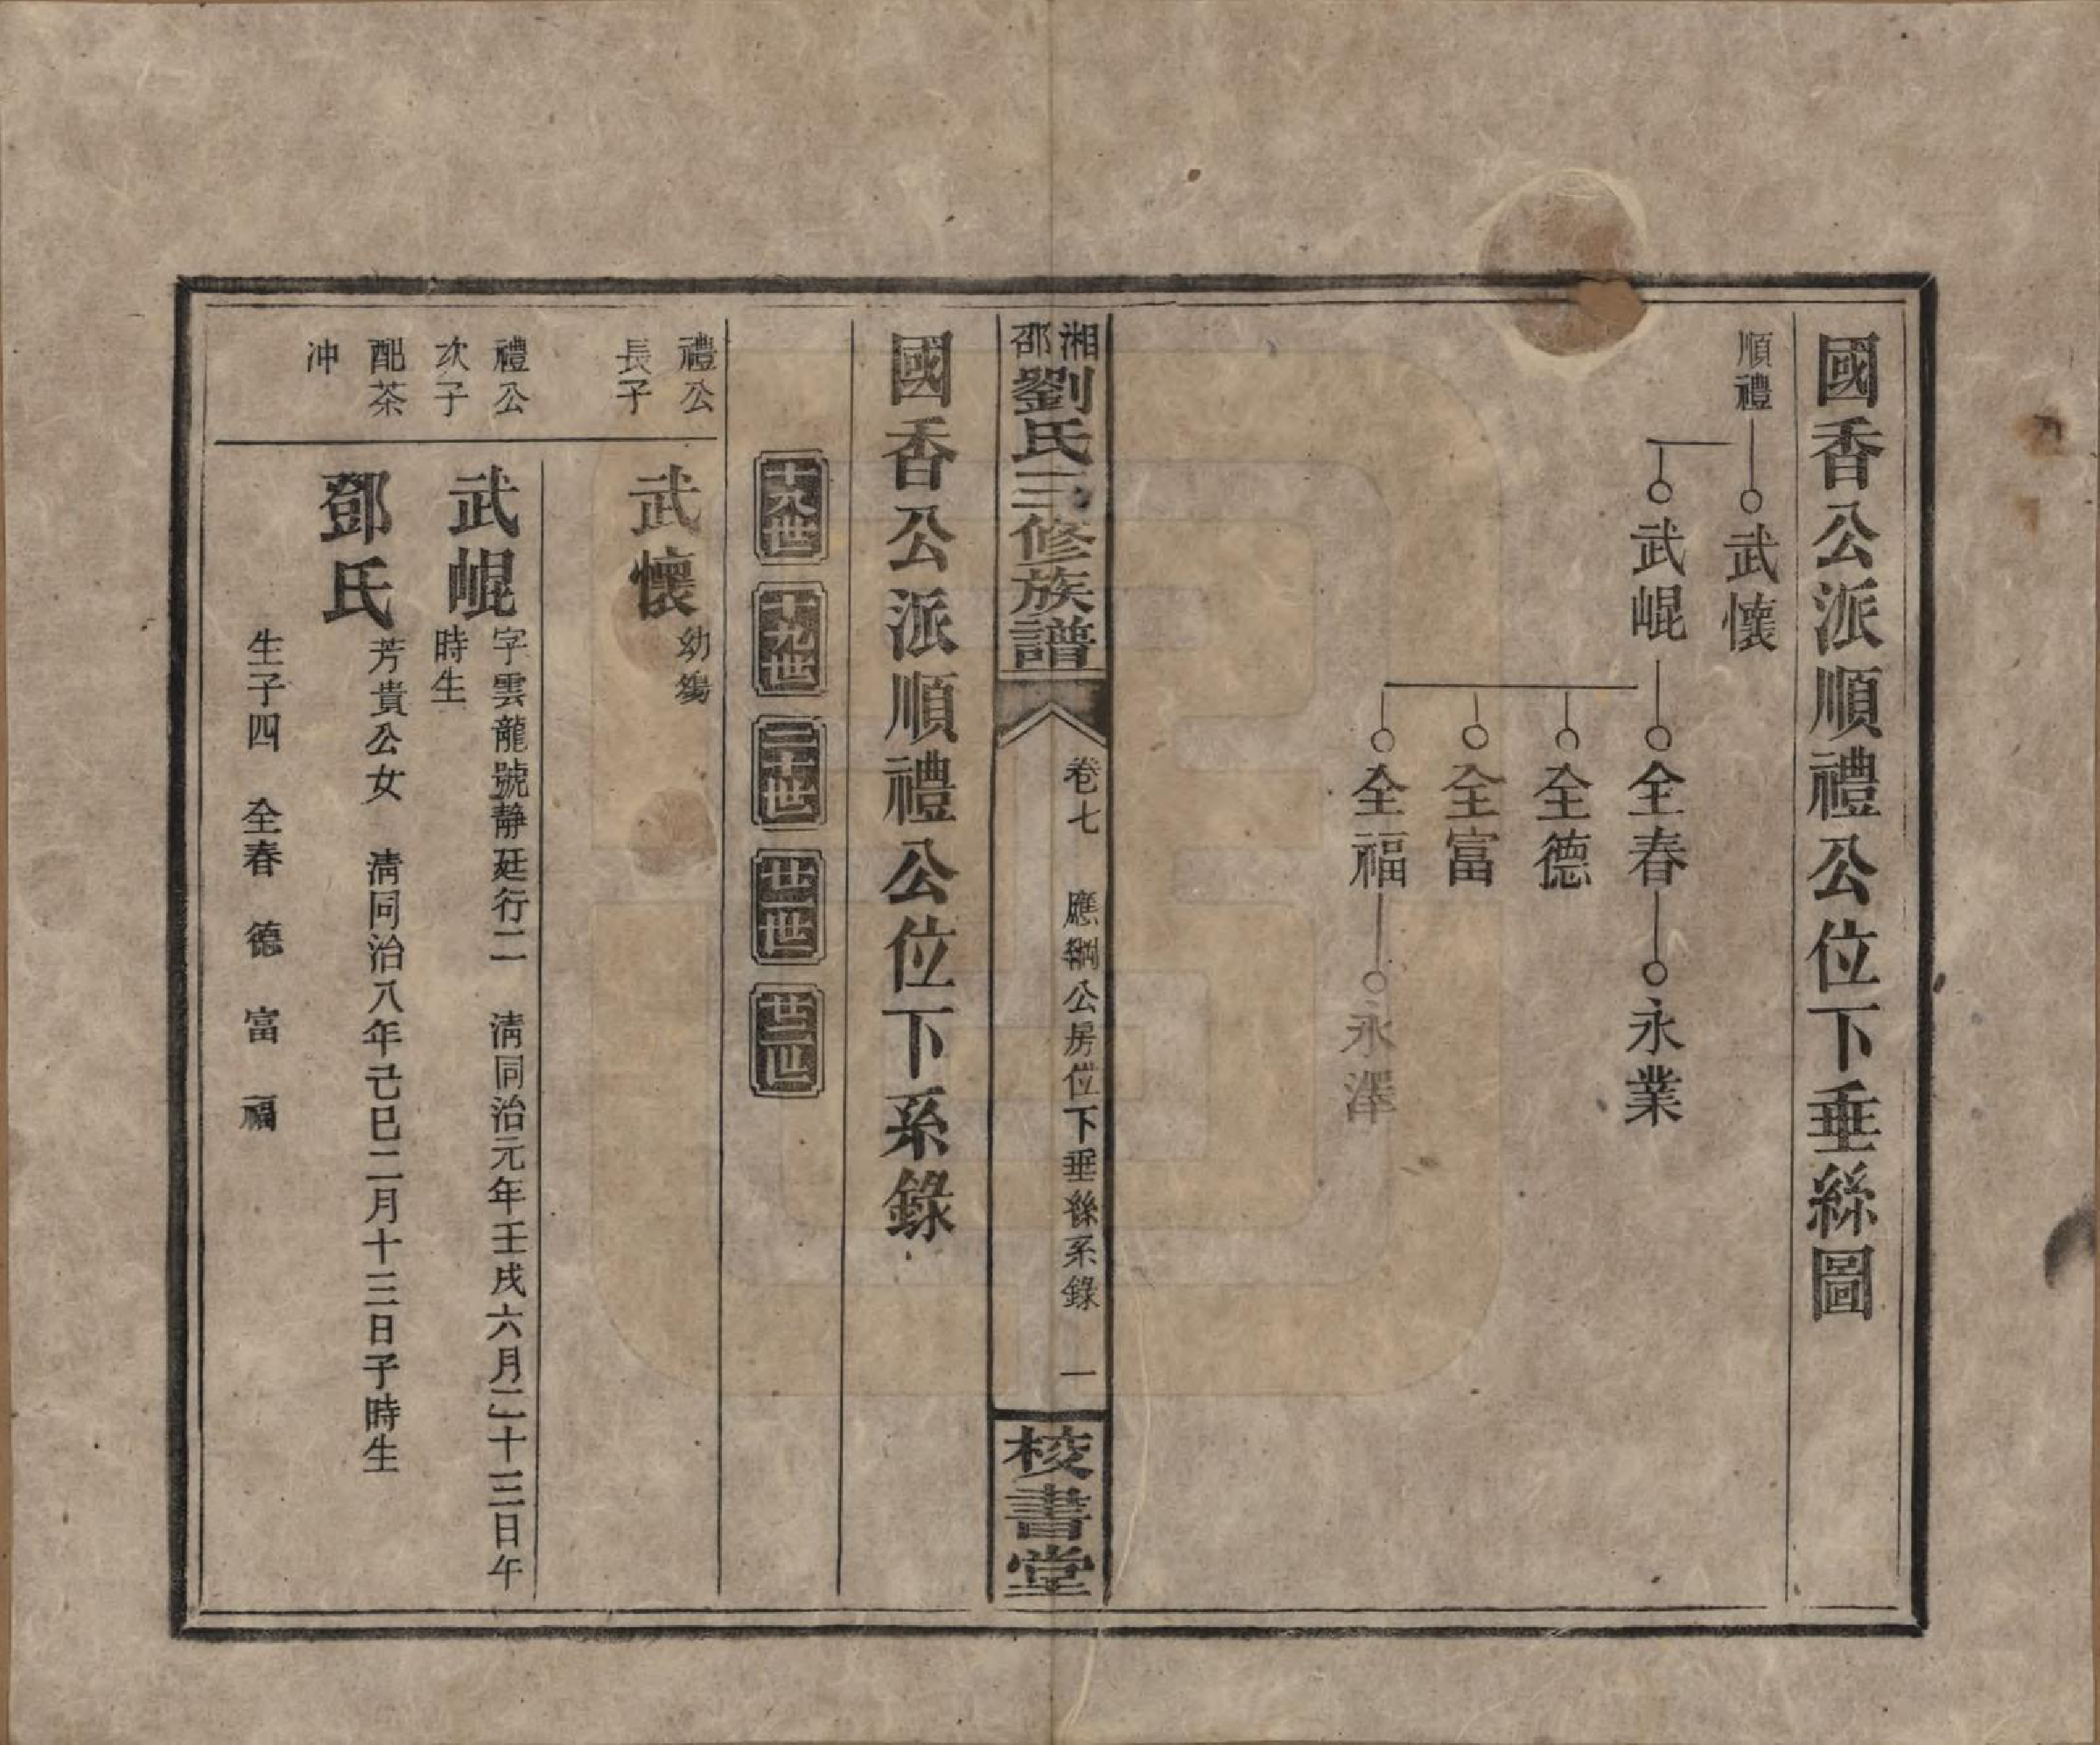 國香公派順禮公位下垂絲圖
順禮
武懷
武崐
全春
永業
全德
全富
全福
永澤
湘邵劉氏三修族譜
卷七　應綱公房位下垂絲系錄　一
校書堂
國香公派順禮公位下系錄
十八世　十九世　二十世　廿一世　廿二世
禮公長子
武懷
幼殤
禮公次子
武崐
字雲龍號靜廷行二　清同治元年壬戌六月二十三日午
時生
配茶冲
鄧氏
芳貴公女　清同治八年己巳二月十三日子時生
生子四　全春　德　富　福